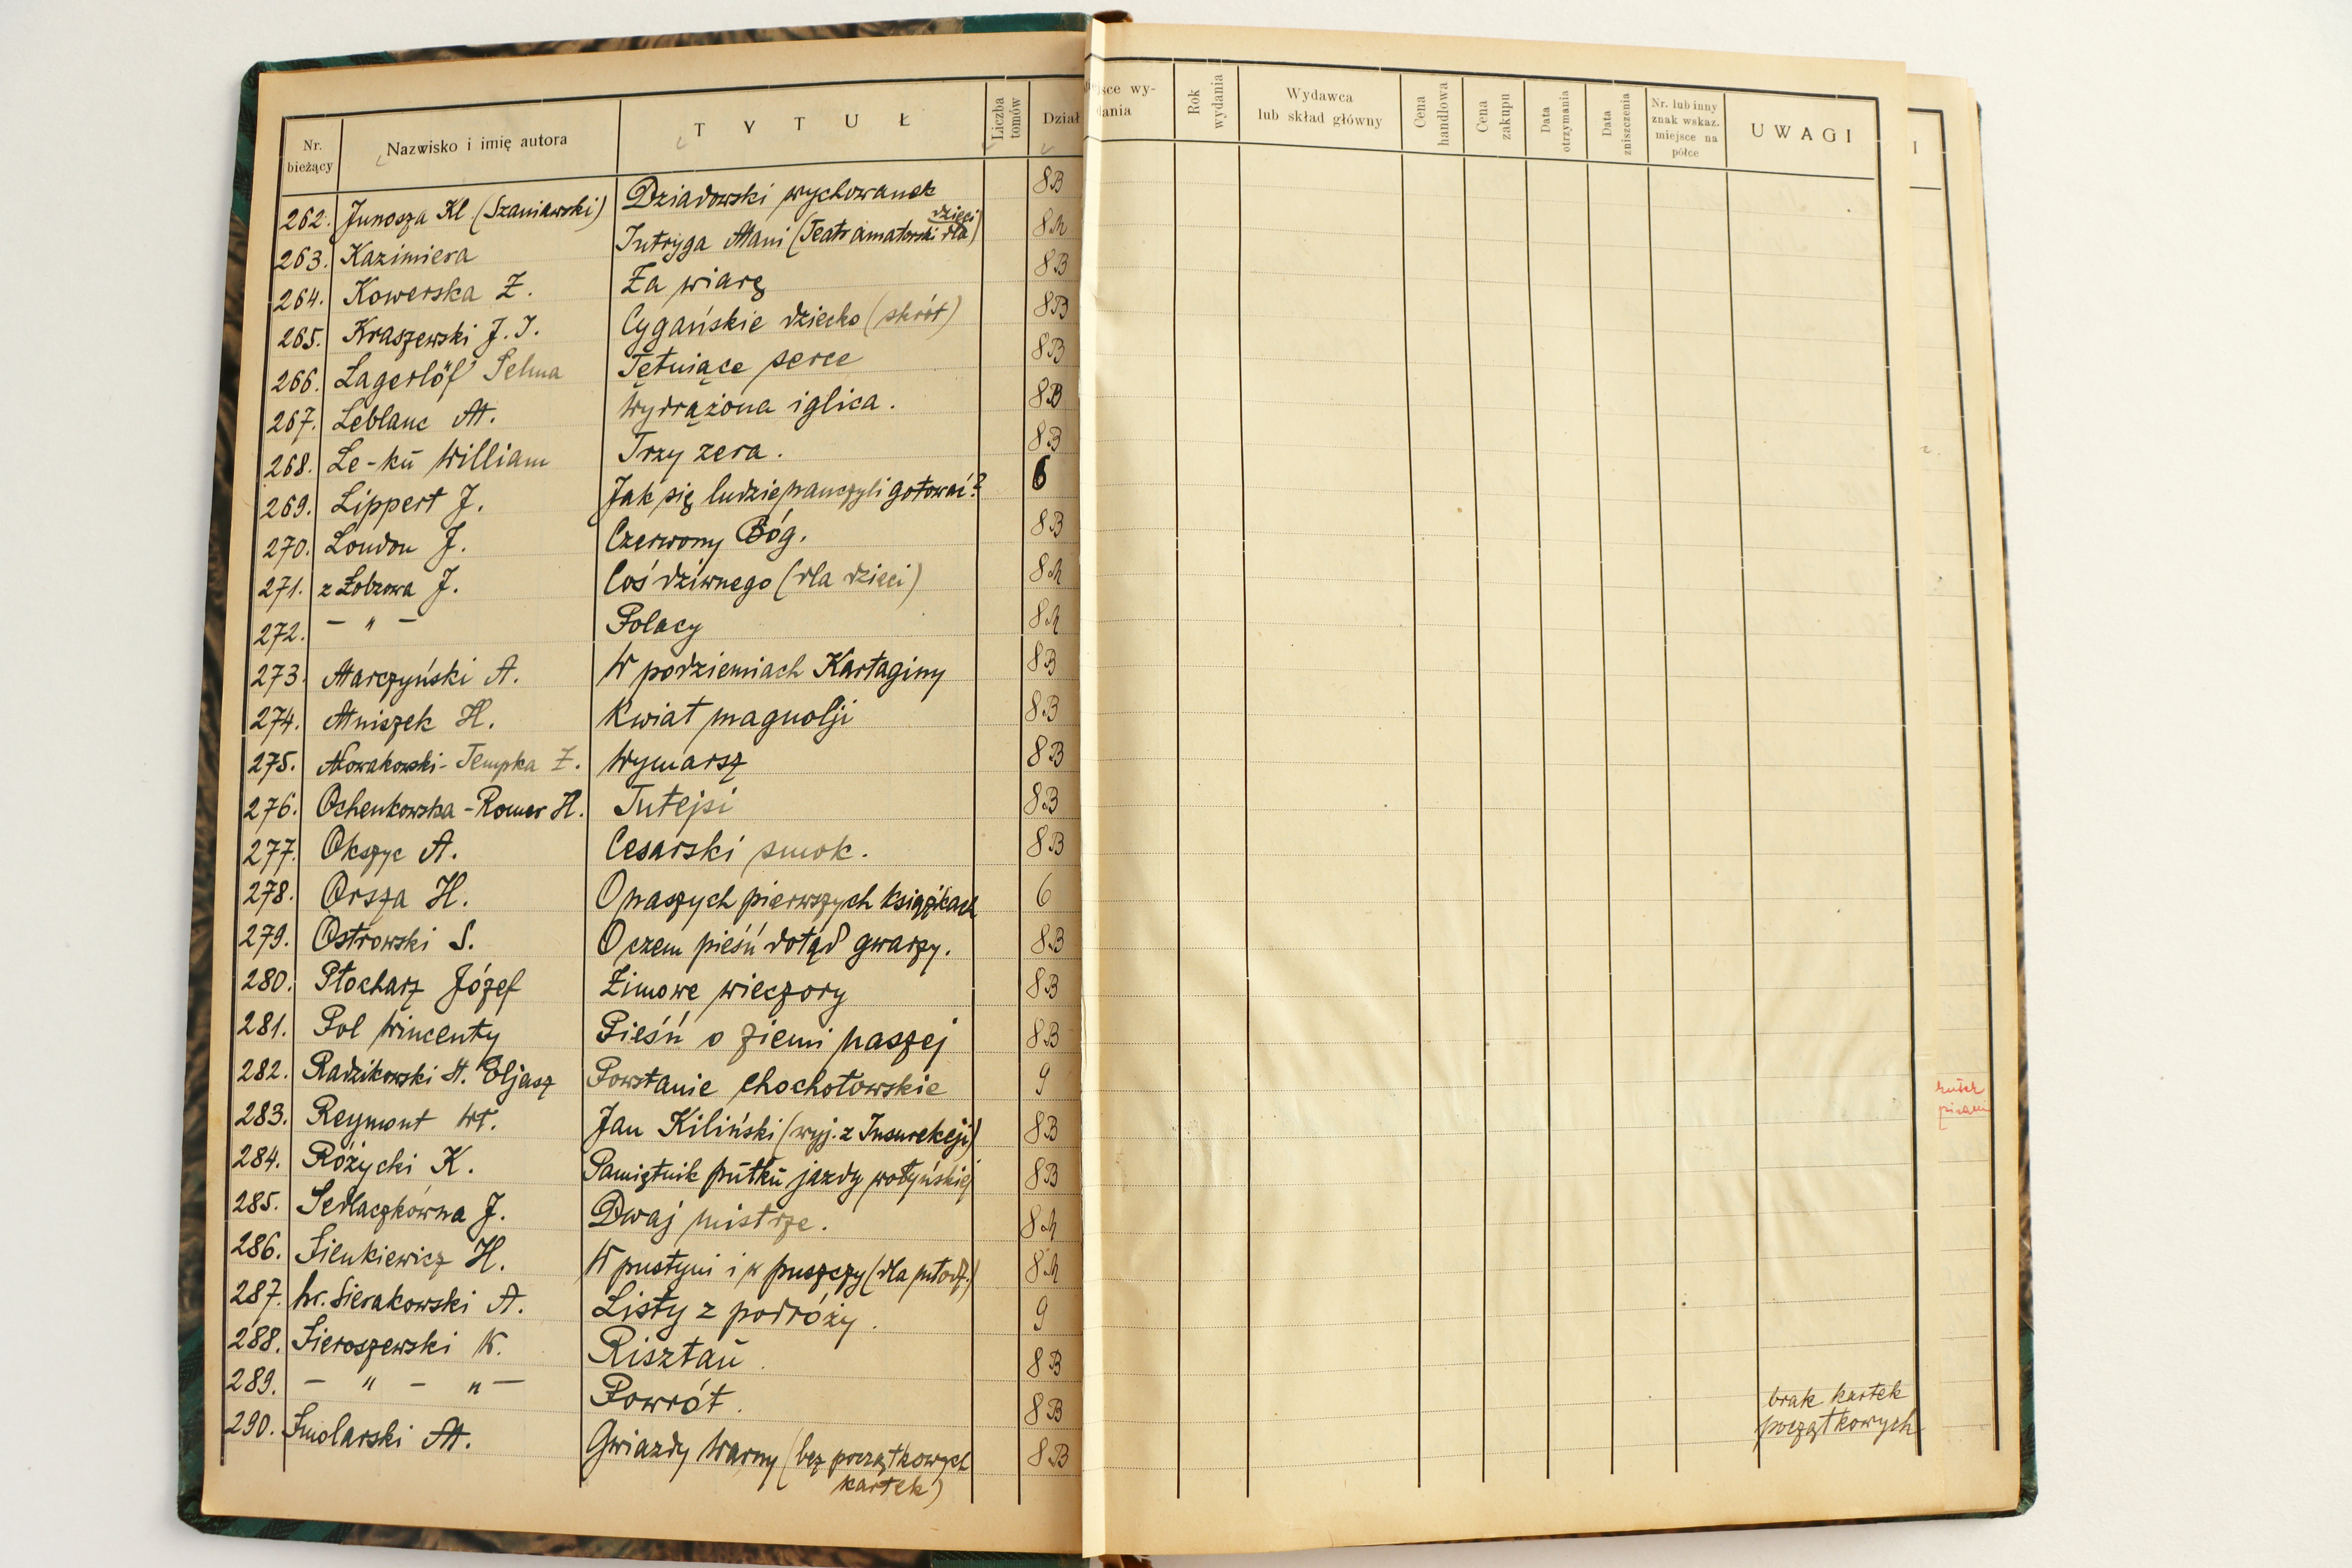 Nr. bieżący Nazwisko i imię autora TYTUŁ Liczba tomów Dział
262. Junosza Kl. (Szaniawski) Dziadowski wychowanek 8B
263. Kazimiera Intryga Mani (Teatr amatorski dla dzieci) 8A
264. Kowerska Z. Za wiarę 8B
265. Kraszewski J. I. Cygańskie dziecko (skrót) 8B
266. Lagerlöf Selma Tętniące serce 8B
267. Leblanc M. Wydrążona iglica. 8B
268. Le-kŭ William Trzy zera. 8B
269. Lippert J. Jak się ludzie nauczyli gotować? 6
270. London J. Czerwony Bóg. 8B
271. z Łobzowa J. Coś dziwnego (dla dzieci) 8A
272. – " – Polacy 8A
273. Marczyński A. W podziemiach Kartaginy 8B
274. Mniszek H. Kwiat magnolji 8B
275. Nowakowski-Tempka Z. Wymarsz 8B
276. Ochenkowska-Romer H. Tutejsi 8B
277. Okszyc A. Cesarski smok. 8B
278. Orsza H. O naszych pierwszych książkach 6
279. Ostrowski S. O czem pieśń dotąd gwarzy. 8B
280. Płocharz Józef Zimowe wieczory 8B
281. Pol Wincenty Pieśń o ziemi naszej 8B
282. Radzikowski St. Eljasz Powstanie chochołowskie 9
283. Reymont Wł. Jan Kiliński (wyj. z Insurekcji) 8B
284. Różycki K. Pamiętnik pŭłkŭ jazdy wołyńskiej 8B
285. Sedlaczkówna J. Dwaj mistrze. 8A
286. Sienkiewicz H. W pustyni i w puszczy (dla młodz.) 8A
287. hr. Sierakowski A. Listy z podróży. 9
288. Sieroszewski W. Risztaŭ. 8B
289. – " – " – Powrót. 8B
290. Smolarski M. Gwiazdy Warny (bez początkowych 8B
kartek)
Wydania
Rok wydania
Wydawca lub skład główny
Cena handlowa
Cena zakupu
Data otrzymania
Data zniszczenia
Nr. lub inny znak wskaz. miejsce na półce
UWAGI
brak kartek
początkowych